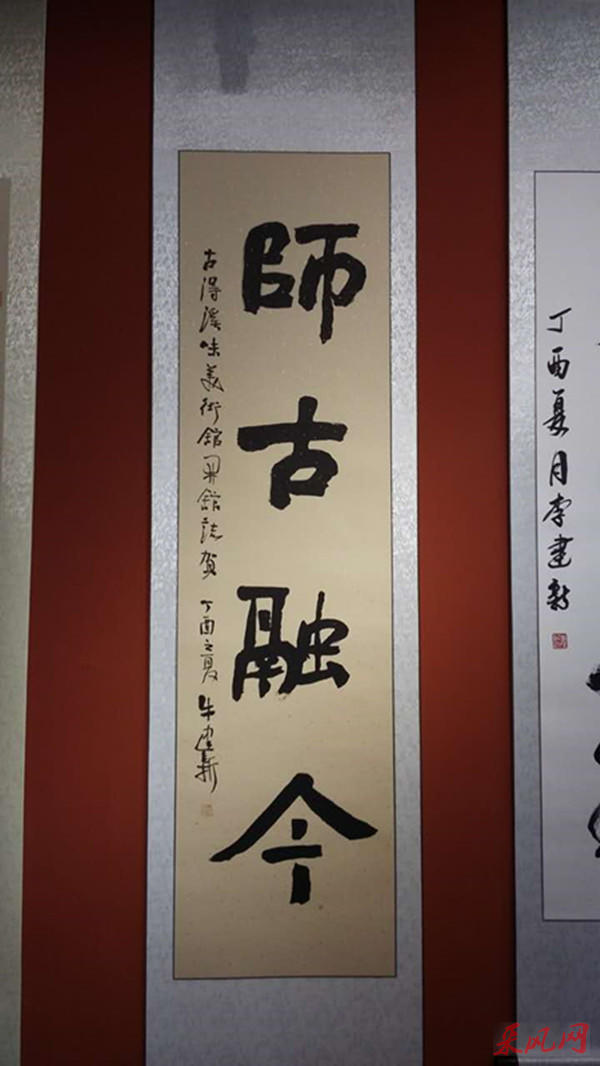 師古融今
古得溪味美術館開館誌賀 丁酉之夏 朱建新
丁酉夏月李建新
采风网